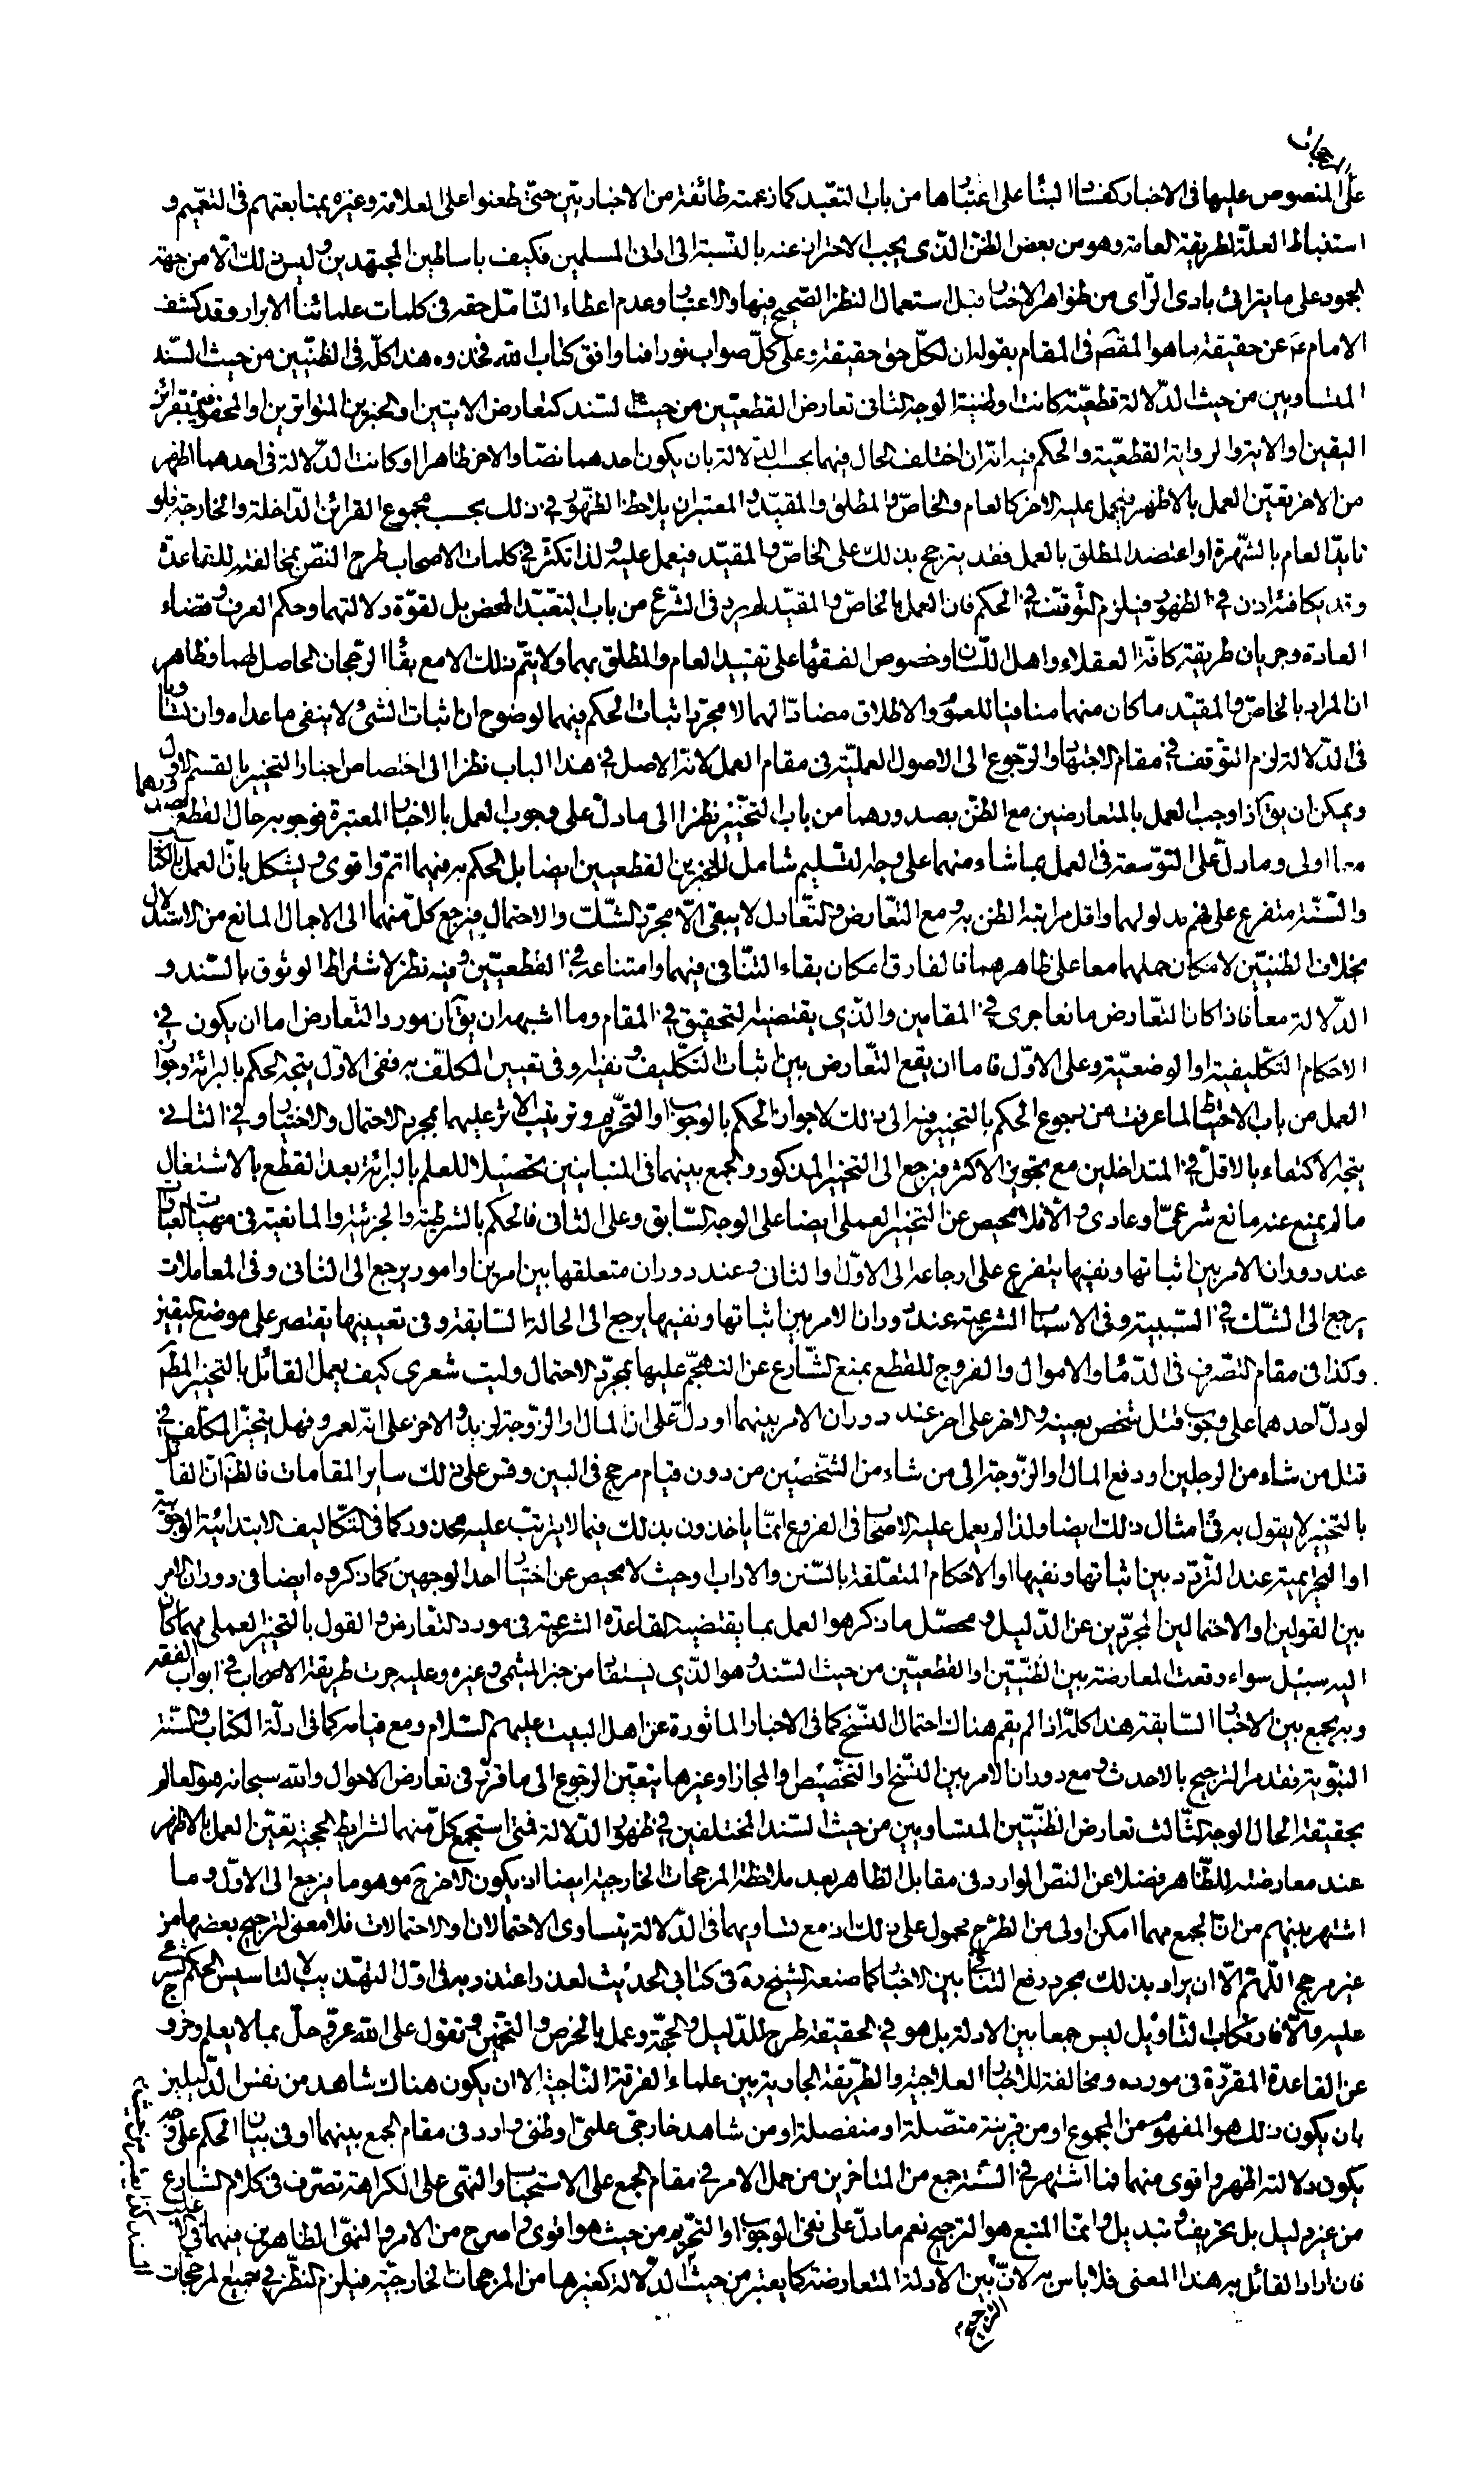 على المنصوص عليها فى الاخبار كفساد البناء على اعتبارها من باب التعبّد كما زعمته طائفة من الاخباريّين حتى طعنوا على العلامة وغيره بمتابعتهم فى التعميم و
استنباط العلّة لطريقة العامة وهو من بعض الظنّ الذى يجب الاحتراز عنه بالنّسبة الى ادنى المسلمين فكيف باساطين المجتهدين وليس ذلك الّا من جهة
الجمود على ما يترائى بادى الرّأى من ظواهر الاخبار قبل استعمال النظر الصّحيح فيها والاعتبار وعدم اعطاء التّامّل حقه فى كلمات علمائنا الابرار وقد كشف
الامام عَ عن حقيقة ما هو المقصَ فى المقام بقوله ان لكلّ حق حقيقة وعلى كلّ صواب نورا فما وافق كتاب اللّه فخذوه هذا كلّه فى الظنّيين من حيث السّند
المتساويين من حيث الدّلالة قطعيّة كانت او ظنية الوجه الثانى تعارض القطعيّين من حيث السند كتعارض الايتين او الخبرين المتواترين او المحفوفين بقرائن
اليقين او الاية والرواية القطعيّة والحكم فيه انّه ان اختلف الحال فيهما بحسب الدّلالة بان يكون احدهما نصّا والاخر ظاهرا او كانت الدّلالة فى احدهما اظهر
من الاخر تعيّن العمل بالاظهر فيحمل عليه الاخر كالعام والخاصّ والمطلق والمقيّد والمعتبر ان يلاحظ الظّهور فى ذلك بحسب مجموع القرائن الدّاخلة والخارجة فلو
تايّد العام بالشّهرة او اعتضد المطلق بالعمل فقد يترجح بذلك على الخاصّ والمقيّد فيعمل عليه ولذا تكثر فى كلمات الاصحاب طرح النصّ بمخالفته للقاعدة
وقد يتكافئ ان فى الظهور فيلزم التّوقّف فى الحكم فان العمل بالخاصّ والمقيّد لم يرد فى الشّرع من باب التعبّد المحض بل لقوّة دلالتهما وحكم العرف وقضاء
العادة وجريان طريقة كافّة العقلاء واهل اللّسان وخصوص الفقهاء على تقييد العام والمطلق بهما ولا يتمّ ذلك الا مع بقاء الرّجحان الحاصل لهما وظاهر
ان المراد بالخاصّ والمقيّد ما كان منهما منافيا للعموم والاطلاق مضادّا لهما لا مجرّد اثبات الحكم فيهما لوضوح ان اثبات الشئ لا ينفى ما عداه وان تساويا
فى الدّلالة لزم التوقف فى مقام الاجتهاد والرّجوع الى الاصول العمليّة فى مقام العمل لانّه الاصل فى هذا الباب نظرا الى اختصاص اخبار التخيير بالقسم الاول
ويمكن ان يقَ اذا وجب العمل بالمتعارضين مع الظنّ بصدورهما من باب التّخيير نظرا الى ما دلّ على وجوب العمل بالاخبار المعتبرة فوجوبه حال القطع بصدورهما
معا اولى وما دلّ على التّوسعة فى العمل بما شاء منهما على وجه التّسليم شامل للخبرين القطعيين ايضا بل الحكم به فيهما اتمّ واقوى ويشكل بانّ العمل بالكتاب
والسّنّة متفرع على فهم مدلولهما واقل مراتبه الظن به ومع التّعارض والتّعادل لا يبقى الّا مجرّد الشّك والاحتمال فيرجع كلّ منهما الى الاجمال المانع من الاستدلال
بخلاف الظنيّين لامكان حملهما معا على ظاهرهما فالفارق امكان بقاء التّنافى فيهما وامتناعه فى القطعيّين وفيه نظر لاشتراط الوثوق بالسّند و
الدّلالة معا فاذا كان التّعارض مانعا جرى فى المقامين والّذى يقتضيه التحقيق فى المقام وما اشبهه ان يقَ ان مورد التّعارض اما ان يكون فى
الاحكام التّكليفية او الوضعيّة وعلى الاوّل فاما ان يقع التّعارض بين اثبات التّكليف ونفيه او فى تعيين المكلّف به ففى الاوّل يتجه الحكم بالبرائة وجواز
العمل من باب الاحتياط لما عرفت من رجوع الحكم بالتخيير فيه الى ذلك لا جواز الحكم بالوجوب او التّحريم وترتيب الاثر عليهما بمجرد الاحتمال والاختيار وفى الثانى
يتجه الاكتفاء بالاقلّ فى المتداخلين مع تجويز الاكثر فيرجع الى التخيير المذكور والجمع بينهما فى المتباينين تحصيلا للعلم بالبرائة بعد القطع بالاشتغال
ما لم يمنع عنه مانع شرعىّ او عادى والّا فلا محيص عن التخيير العملى ايضا على الوجه السّابق وعلى الثانى فالحكم بالشرطية والجزئية والمانعية فى مهيات العبادات
عند دوران الامر بين اثباتها ونفيها يتفرع على ارجاعه الى الاوّل او الثانى وعند دوران متعلقها بين امرين او امور يرجع الى الثانى وفى المعاملات
يرجع الى الشّك فى السّببية وفى الاسباب الشرعية عند دوران الامر بين اثباتها ونفيها يرجع الى الحالة السّابقة وفى تعيينها يقتصر على موضع اليقين
وكذا فى مقام التصّرف فى الدّماء والاموال والفروج للقطع بمنع الشّارع عن التهجّم عليها بمجرّد الاحتمال وليت شعرى كيف يعمل القائل بالتخيير المطَ
لو دلّ احدهما على وجوب قتل شخص بعينه والاخر على اخر عند دوران الامر بينهما او دلّ على ان المال او الزّوجة لزيد والاخر على انّه لعمرو فهل يتخيّر المكلّف فى
قتل من شاء من الرجلين او دفع المال او الزّوجة الى من شاء من الشّخصين من دون قيام مرجح فى البين وقس على ذلك ساير المقامات فالظَ انّ القائل
بالتخيير لا يقول به فى امثال ذلك ايضا ولذا لم يعمل عليه الاصحاب فى الفروع انّما ياخذون بذلك فيما لا يترتّب عليه محذور كما فى التّكاليف الابتدائية الوجوبية
او التحريمية عند التّردّد بين اثباتها ونفيها او الاحكام المتعلّقة بالسّنن والاداب وحيث لا محيص عن اختيار احد الوجهين كما ذكروه ايضا فى دوران الامر
بين القولين او الاحتمالين المجرّدين عن الدّليل ومحصّل ما ذكر هو العمل بما يقتضيه القاعدة الشرعية فى مورد التّعارض والقول بالتخيير العملى مهما كان
اليه سبيل سواء وقعت المعارضة بين الظّنّيّين او القطعيّين من حيث السّند وهو الّذى يستفاد من خبر الميثمى وغيره وعليه جرت طريقة الاصحاب فى ابواب الفقه
وبه يجمع بين الاخبار السّابقة هذا كلّه اذا لم يقم هناك احتمال النّسخ كما فى الاخبار الماثورة عن اهل البيت عليهم السّلام ومع قيامه كما فى ادلّة الكتاب والسّنّة
النبّوية فقد مر الترجيح بالاحدث ومع دوران الامر بين النّسخ او التخصّيص او المجاز او غيرها يتعيّن الرجوع الى ما قرّر فى تعارض الاحوال واللّه سبحانه هو العالم
بحقيقة الحال الوجه الثّالث تعارض الظّنّيّين المتساويين من حيث السّند المختلفين فى ظهور الدّلالة فمتى استجمع كلّ منهما لشرايط الحجية تعيّن العمل بالاظهر
عند معارضته للظّاهر فضلا عن النصّ الوارد فى مقابل الظاهر بعد ملاحظة المرجحات الخارجية ايضا اذ يكون الاخر حَ موهوما فيرجع الى الاوّل وما
اشتهر بينهم من انّ الجمع مهما امكن اولى من الطرح محمول على ذلك اذ مع تساويهما فى الدّلالة يتساوى الاحتمالان او الاحتمالات فلا معنى لترجيح بعضها من
غير مرجح اللّهم الّا ان يراد بذلك مجرد رفع التنافى بين الاخبار كما صنعه الشيخ رَه فى كتابى الحديث لعذر اعتذر به فى اوّل التهذيب لا لتاسيس الحكم الشرعى
عليه والّا فارتكاب التّاويل ليس جمعا بين الادلة بل هو فى الحقيقة طرح للدّليل والحجّة وعمل بالخرص والتخمين وتقول على اللّه عزّ وجلّ بما لا يعلم وخروج
عن القاعدة المقرّرة فى مورده ومخالفة للاخبار العلاجية والطّريقة الجارية بين علماء الفرقة النّاجية الا ان يكون هناك شاهد من نفس الدّليلين
بان يكون ذلك هو المفهوم من المجموع او من قرينة متصّلة او منفصلة او من شاهد خارجى علمىّ او ظنى وارد فى مقام الجمع بينهما او فى بيان الحكم على وجه
يكون دلالته اظهر واقوى منهما فما اشتهر فى السنة جمع من المتاخرين من حمل الامر فى مقام الجمع على الاستحباب والنهى على الكراهة تصرّف فى كلام الشارع
من غير دليل بل تحريف وتبديل وانّما المتبع هو الترجيح نعم ما دلّ على نفى الوجوب او التّحريم من حيث هو اقوى واصرح من الامر والنهى الظاهرين فيهما
فان اراد القائل به هذا المعنى فلا باس به لانّ الترجيح بين الادلة المتعارضة كما يعتبر من حيث الدّلالة كغيرها من المرجحات الخارجيّة فيلزم النظّر فى جميع المرجحات